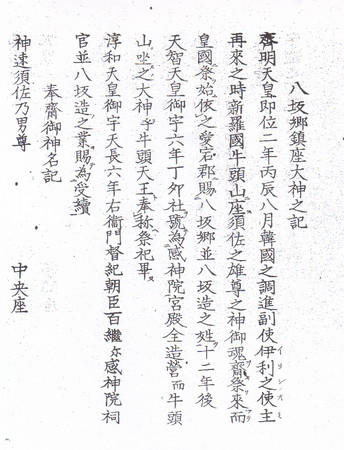 八坂郷鎮座大神之記
齊明天皇即位二年丙辰八月韓國之調進副使伊利之使主
再來之時新羅國牛頭山座須佐之雄尊之神御魂齋祭來而
皇國祭始依之愛宕郡賜八坂郷並八坂造之姓十二年後
天智天皇御宇六年丁卯社號為感神院宮殿全造営而牛頭
山坐之大神乎牛頭天王奉称祭祀畢
淳和天皇御宇天長六年右衞門督紀朝臣百繼尓感神院祠
官並八坂造之業賜為受續
奉齋御神名記
神速須佐乃男尊　中央座